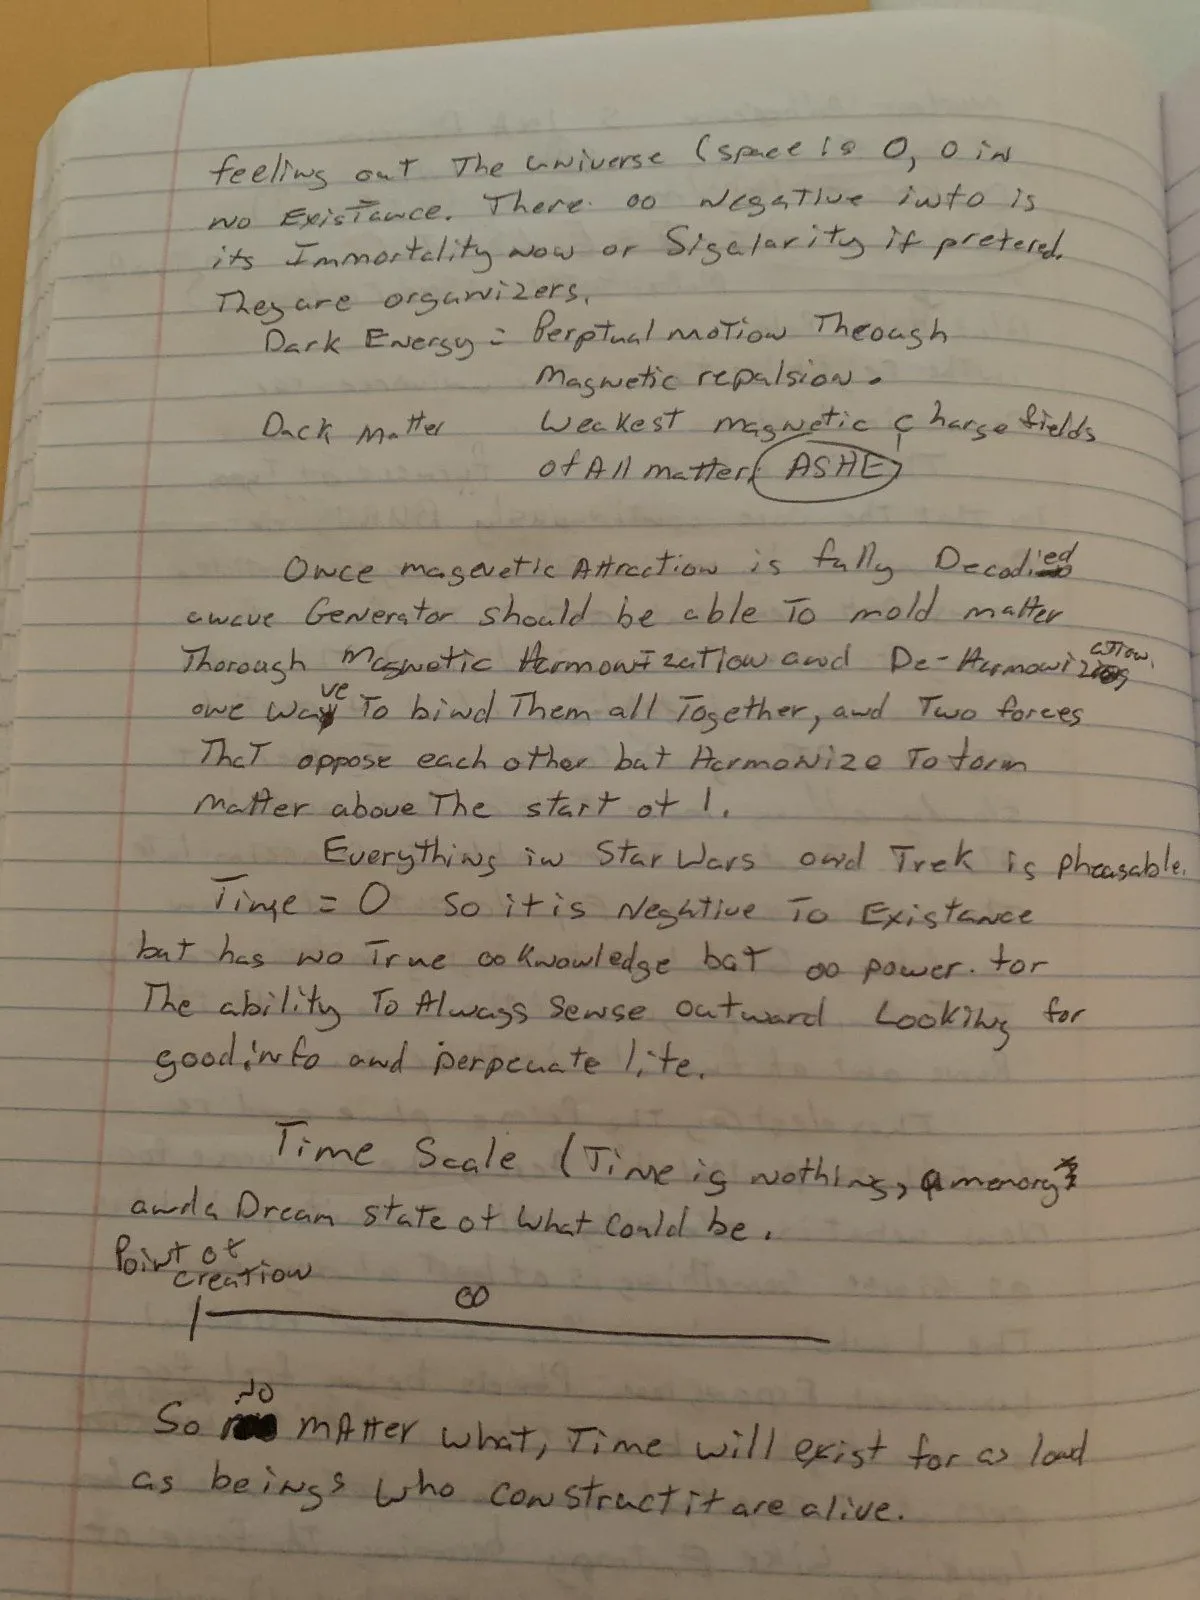 feeling out The universe (space is 0, 0 in
no Existance. There ∞ Negative into is
its Immortality now or Sigalarity if prefered.
They are organizers.
Dark Energy = Perptual motion Through
Magnetic repulsion.
Dack Matter Weakest magnetic charge fields
of All matter. ASHE
Once magenetic Attraction is fully Decodied
a wave Generator should be able To mold matter
Thorough Magnetic Harmonization and De-Harmonization.
one wave To bind Them all Together, and Two forces
That oppose each other but Harmonize To form
Matter above The start of 1.
Everything in Star Wars and Trek is pheasable.
Time = 0 So it is Neghtive To Existance
but has no True ∞ Knowledge but ∞ power. for
The ability To Always sense outward Looking for
good info and perpeuate life.
Time Scale (Time is nothing, a memory
and a Dream state of What Could be.
Point of
creation
∞
So No mAtter what, Time will exist for as loud
as beings who construct it are alive.